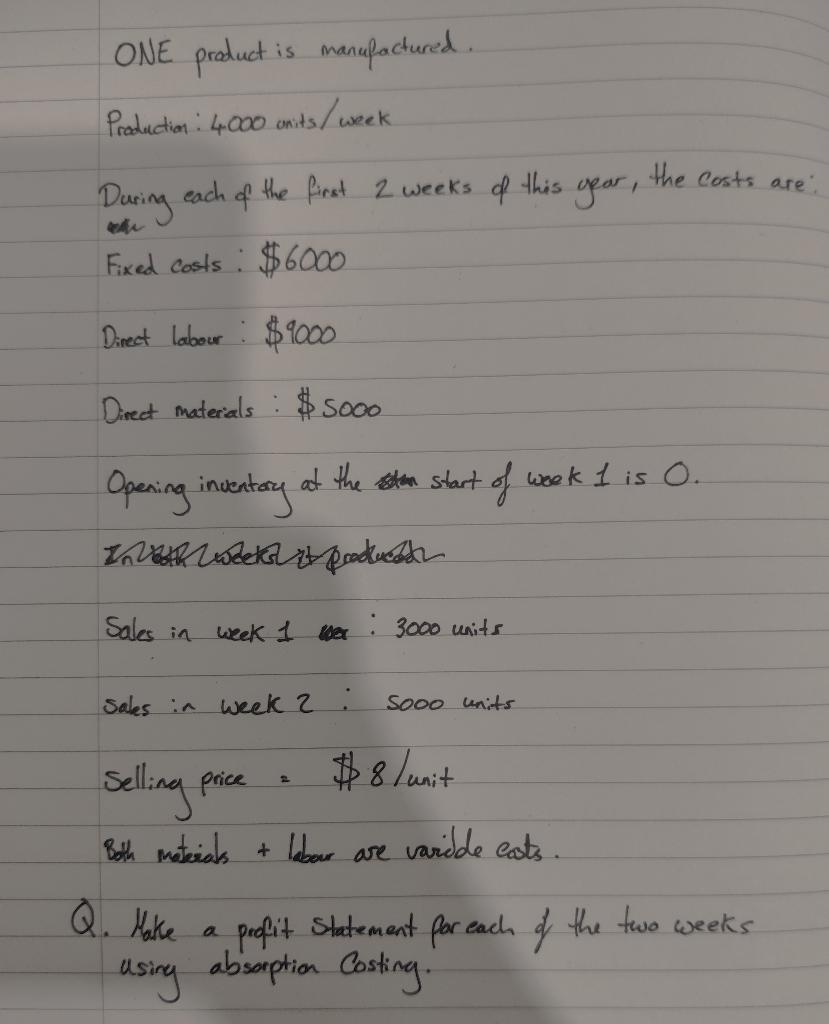 ONE product is manufactured.
Production : 4000 units/week
During each of the first 2 weeks of this year, the costs are:
Fixed costs : $6000
Direct labour : $9000
Direct materials : $5000
Opening inventory at the start of week 1 is 0.
Sales in week 1 : 3000 units
Sales in week 2 : 5000 units
Selling price = $8/unit
Both materials + labour are varidde costs.
Q. Make a profit statement for each of the two weeks
using absorption costing.